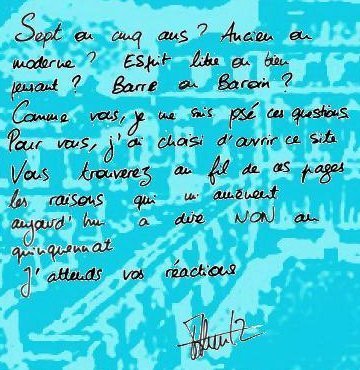 Sept ou cinq ans ? Ancien ou
moderne ? Esprit libre ou bien
pensant ? Barre ou Baroin ?
Comme vous, je me suis posé ces questions
Pour vous, j'ai choisi d'ouvrir ce site
Vous trouverez au fil de ces pages
les raisons qui m'amènent
aujourd'hui a dire NON au
quinquennat
J'attends vos réactions